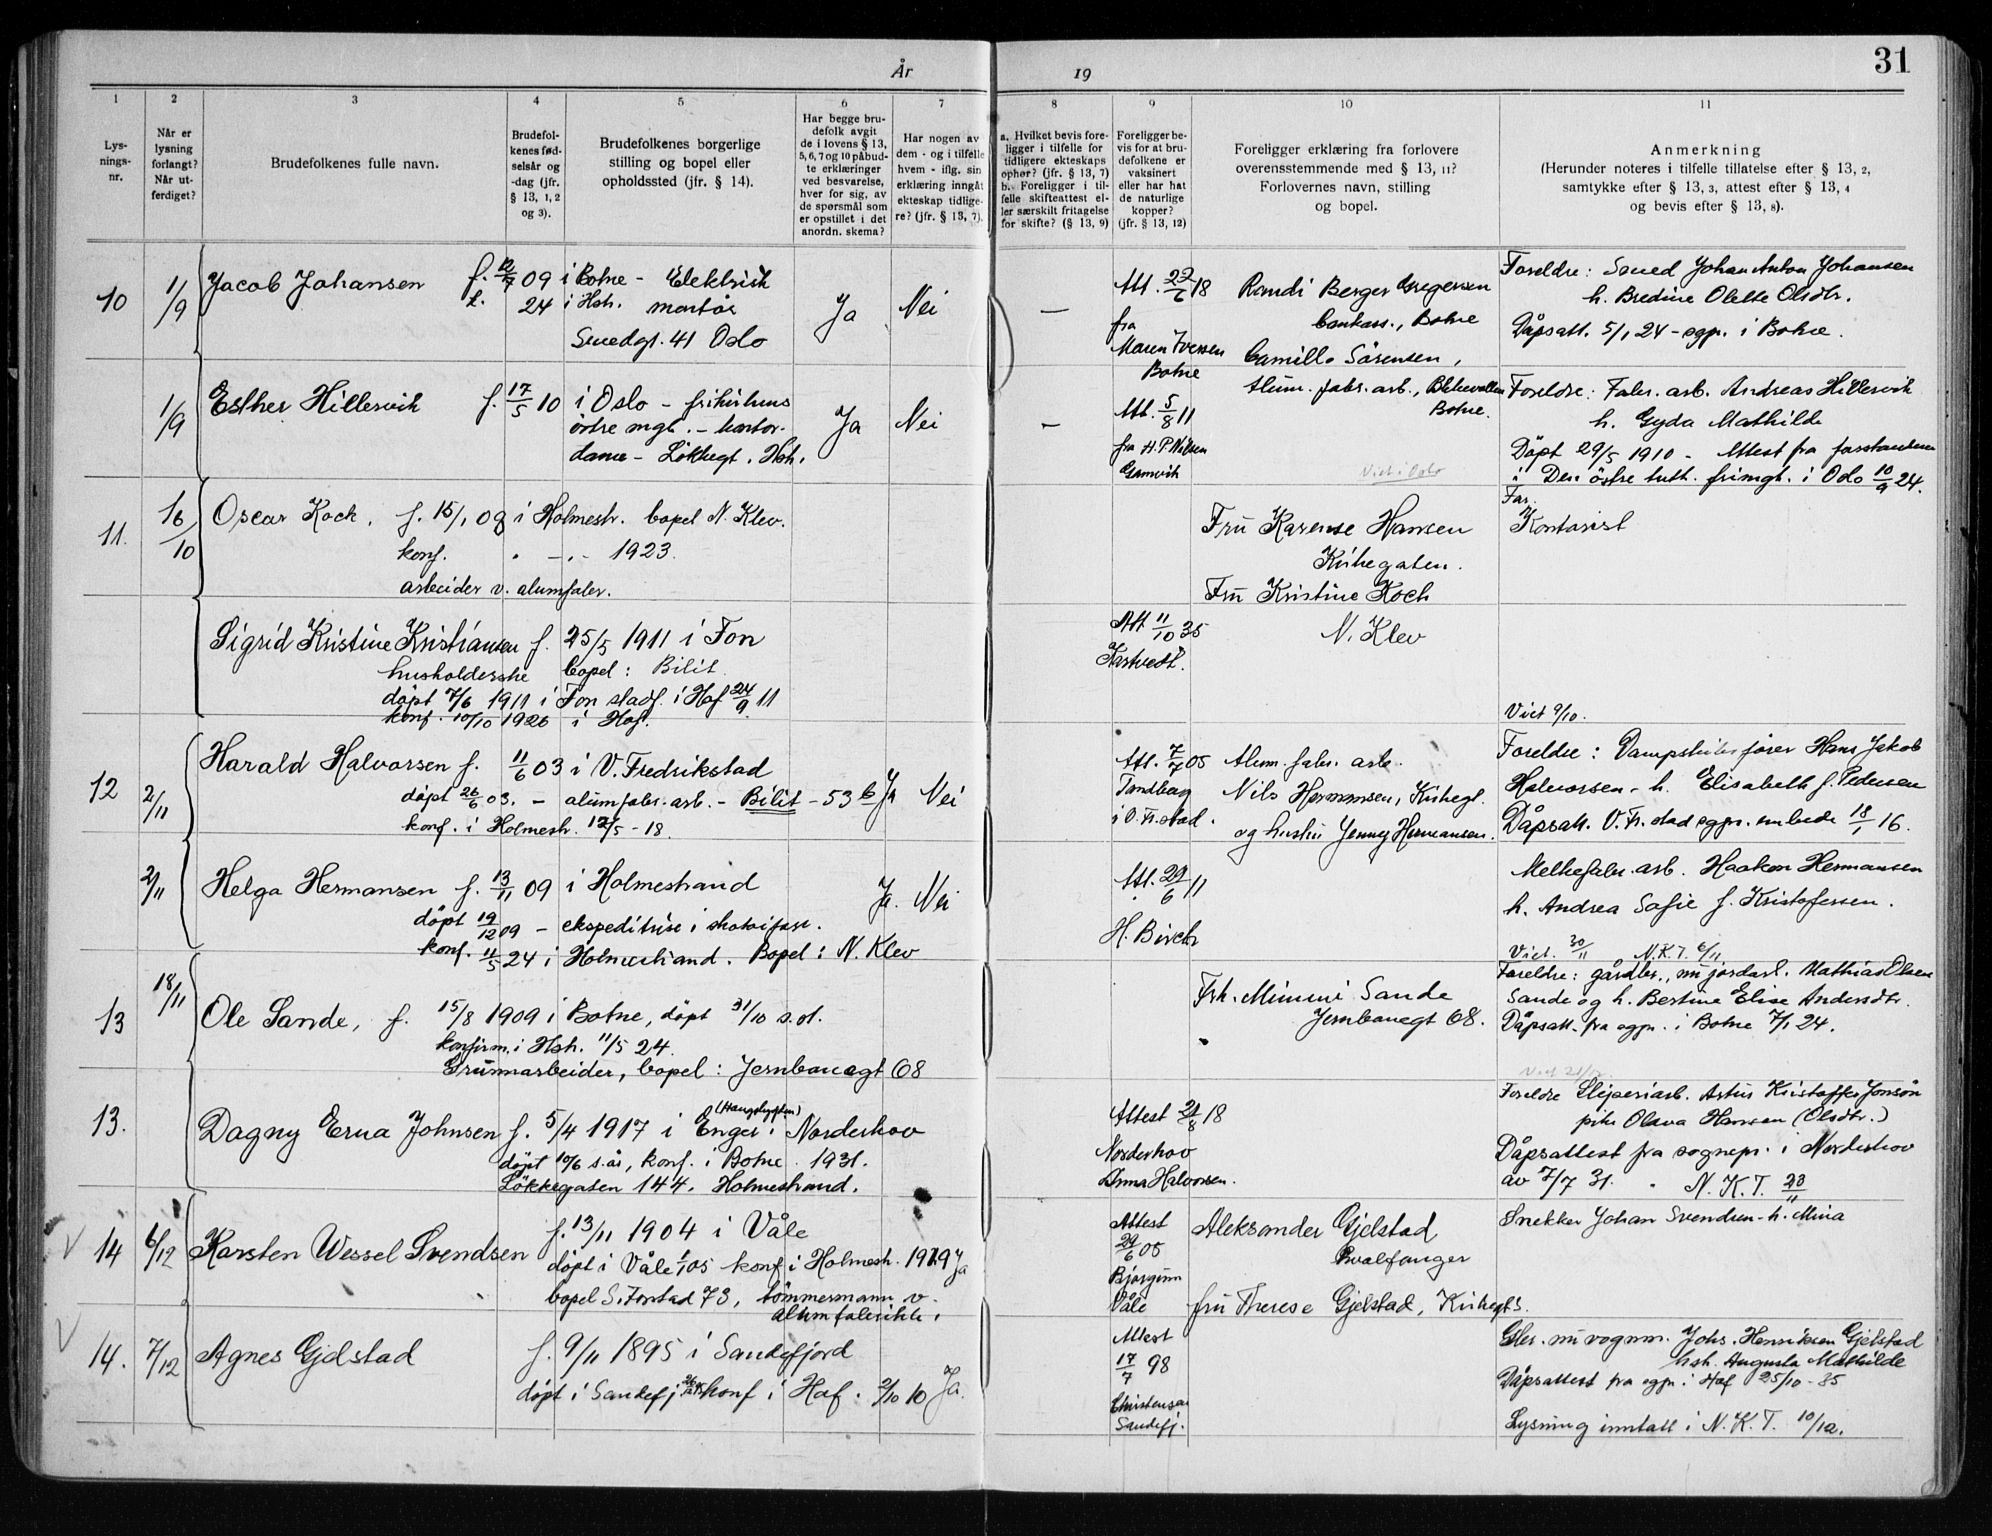 År
19
31
1
2
3
4
5
6
7
8
9
10
11
Lys-
nings-
nr.
Når er
lysning
forlangt?
Når ut-
ferdiget?
Brudefolkenes fulle navn.
Brudefol-
kenes fød-
selsår og
-dag (jfr.
§ 13, 1, 2
og 3).
Brudefolkenes borgerlige
stilling og bopel eller
opholdssted (jfr. § 14).
Har begge bru-
defolk avgit
de i lovens § 13,
5, 6, 7 og 10 påbud-
te erklæringer
ved besvarelse,
hver for sig, av
de spørsmål som
er opstillet i det
anordn. skema?
Har nogen av
dem - og i tilfelle
hvem - iflg. sin
erklæring inngåt
ekteskap tidlige-
re? (jfr. § 13, 7).
a. Hvilket bevis fore-
ligger i tilfelle for
tidligere ekteskaps
ophør? (jfr. § 13, 7)
b. Foreligger i til-
felle skifteattest el-
ler særskilt fritagelse
for skifte? (§ 13, 9)
Foreligger be-
vis for at bru-
defolkene er
vaksinert
eller har hat
de naturlige
kopper?
(jfr. § 13, 12)
Foreligger erklæring fra forlovere
overensstemmende med § 13, 11?
Forlovernes navn, stilling
og bopel.
Anmerkning
(Herunder noteres i tilfelle tillatelse efter § 13, 2,
samtykke efter § 13, 3, attest efter § 13, 4
og bevis efter § 13, 8).
10 1/9 Jacob Johansen f. 12/7 09 i Botne - Elektrisk
24 i Hsh. montør
Smedgt. 41 Oslo
Ja Nei —
Att. 22/6 18
fra
Maren Iversen
Botne
Randi Berger Gregersen
, Botne
Camillo Sörensen,
Alum. fabr. arb.,
Botne.
Foreldre: Smed Johan Anton Johansen
h. Bredine Olette Olsdtr.
Dåpsatt. 5/1 24 - sgpr. i Botne.
1/9 Esther Hillervik f. 17/5 10 i Oslo - frikirkens
östre mgt. - kontor-
dame - Lökkegt. Hsh.
Ja Nei —
Att. 5/8 11
fra H. P. Nilsen
Gamvik
Viet i Oslo
Foreldre: Fabr. arb. Andreas Hillervik
h. Gyda Mathilde
Döpt 29/5 1910 - Attest fra forstanderen
i Den östre luth. frimgt. i Oslo 10/9 24.
11. 16/10 Oscar Koch, f. 15/1 08 i Holmestr. bopel N. Klev.
konf. 1923.
arbeider v. alumfabr.
Fru Karense Hansen
Kirkegaten.
Fru Kristine Koch
N. Klev
Far.
Kontorist
Sigrid Kristine Kristiansen f. 25/5 1911 i Fon
husholderske bopel: Bilit
döpt 7/6 1911 i Fon stadf. i Hof 24/9 11
konf. 10/10 1926 i Hof.
Att 11/10 35
Viet 9/10.
12 2/11 Harald Halvorsen f. 11/6 03 i V. Fredrikstad
döpt 26/6 03. - alumfabr. arb. - Bilit - 53 b Ja Nei
konf. i Holmestr. 12/5 - 18.
Att. 7/7 05
Tandberg
i V. Fr.stad.
Alum. fabr. arb.
Nils Hermansen, Kirkegt.
og hustru Jenny Hermansen.
Foreldre: Dampskibsförer Hans Jakob
Halvorsen - h. Elisabeth f. Pedersen
Dåpsatt. V. Fr.stad sgpr. embede 18/1 16.
2/11 Helga Hermansen f. 13/11 09 i Holmestrand
döpt 19/12 09 - ekspeditrise i skotöiforr.
konf. 11/5 24 i Holmestrand. Bopel: N. Klev
Ja. Nei
Att. 29/6 11
H. Birch
Melkefabr. arb. Haakon Hermansen
h. Andrea Sofie f. Kristofersen.
Viet. 30/11 N.K.T. 6/11
13 18/11 Ole Sande, f. 15/8 1909 i Botne, döpt 31/10 s. st.
konfirm. i Hsh. 11/5 24.
Grunnarbeider, bopel: Jernbanegt 68
Frk. Mimmi Sande
Jernbanegt 68.
Foreldre: gårdbr., nu jordarb. Mathias Olsen
Sande og h. Bertine Elise Andersdtr.
Dåpsatt. fra sgpr. i Botne 7/1 24.
13. Dagny Erna Johnsen f. 5/4 1917 i Enger i Norderhov
(Haugsbygden)
döpt 10/6 s. år, konf. i Botne 1931.
Lökkegaten 144. Holmestrand.
Attest 21/8 18
Norderhov
Anna Halvorsen.
Foreldre Sliperiarb. Artur Kristoffer Jonsön
pike Olava Hansen (Olsdtr.)
Dåpsattest fra sognepr. i Norderhov
av 7/7 31. N. K. T. 23/11
V 14 6/12 Karsten Wessel Svendsen f. 13/11 1904 i Våle
döpt i Våle 1/1 05 konf i Holmestr. 1919 Ja
bopel S. Forstad 73, tömmermann v.
alumfabrikk.
Attest
29/6 05
Våle
Aleksander Gjelstad
hvalfanger
fru Therese Gjelstad, Kirkegt 5.
Snekker Johan Svendsen - h. Mina
V 14. 7/12 Agnes Gjelstad f. 9/11 1895 i Sandefjord
döpt i Sandefj konf i Hof. 2/10 10 Ja.
Attest
17/7 98
Christensen
Sandefj.
nu vognm. Johs. Henriksen Gjelstad
hsh. Augusta Mathilde
Dåpsattest fra sgpr. i Hof 25/10 - 35
Lysning inntatt i N. K. T. 10/12.